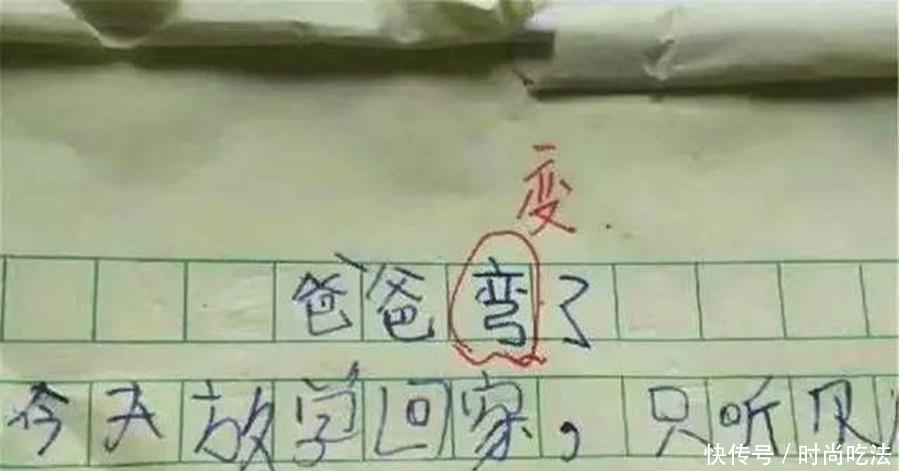 变
爸爸弯了
今天放学回家，只听见
快传号/时尚吃法